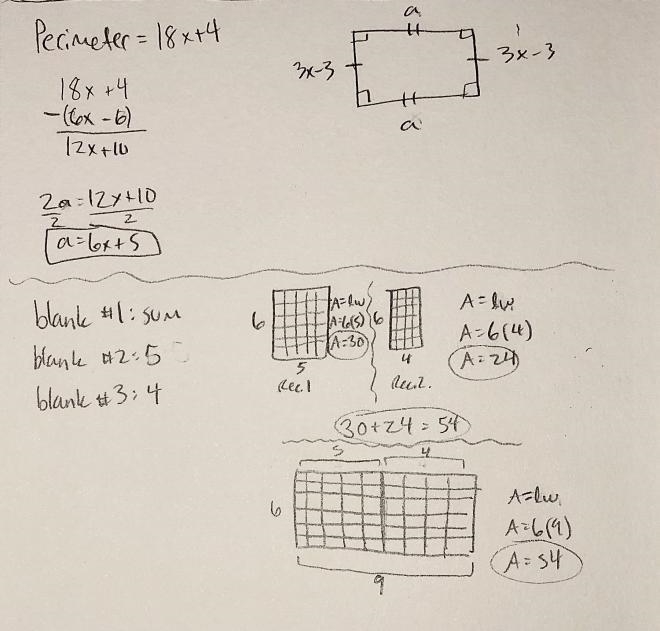 Perimeter = 18x+4
18x +4
-(6x - 6)
12x+10
2a = 12x+10
2 2
a=6x+5
a
3x-3
3x-3
a
blank #1: sum
blank #2: 5
blank #3: 4
6
A=lw
A=6(5)
A=30
5
Rec.1
6
4
Rec.2.
A=lw
A=6(4)
A=24
30+24=54
5 4
6
9
A=lw
A=6(9)
A=54